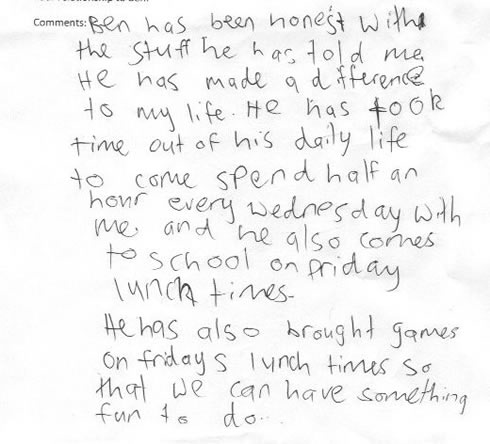 Comments: Ben has been honest with
the stuff he has told me.
He has made a difference
to my life. He has took
time out of his daily life
to come spend half an
hour every wednesday with
me, and he also comes
to school on friday
lunch times.
He has also brought games
on fridays lunch times so
that we can have something
fun to do...